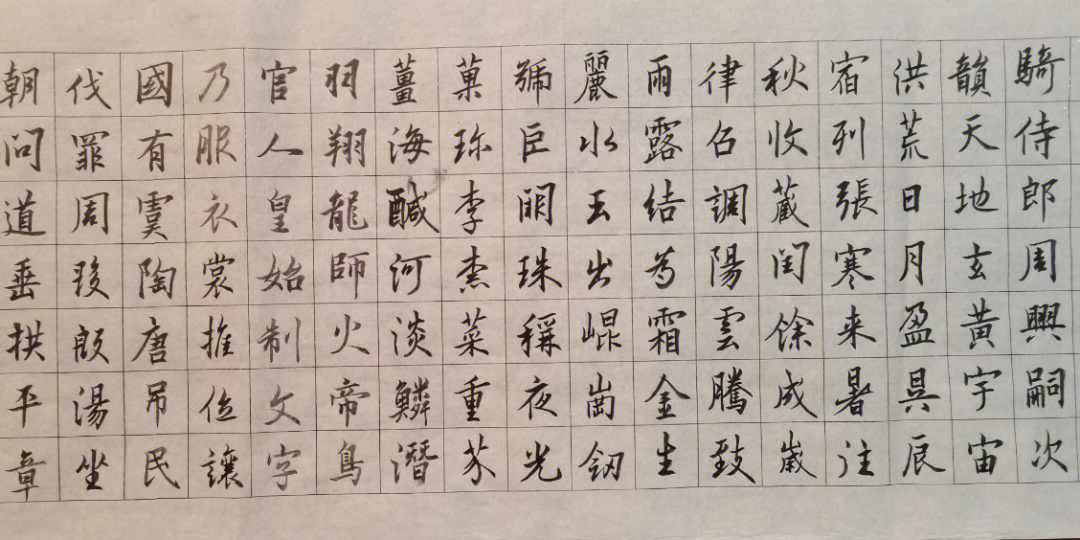 騎侍郎周興嗣次
韻天地玄黃宇宙
洪荒日月盈昃辰
宿列張寒来暑往
秋收蔵閏餘成歲
律呂調陽雲騰致
雨露結為霜金生
麗水玉出崐崗劒
號巨闕珠稱夜光
菓珎李柰菜重芥
薑海醎河淡鱗潛
羽翔龍師火帝鳥
官人皇始制文字
乃服衣裳推位讓
國有虞陶唐吊民
伐罪周發殷湯坐
朝問道垂拱平章